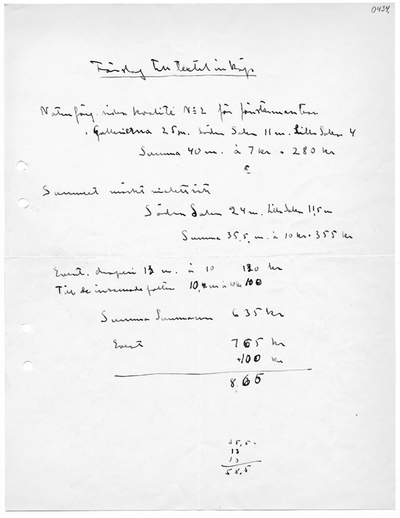 0434
Förslag till textilinköp
Naturfärg. siden kvalité No 2 för fönstermontrar
Gallerierna 25 m. Södra Salen 11 m. Lilla Salen 4
Summa 40 m. à 7 kr = 280 kr
Sammet mörkt
Södra Salen 24 m. Lilla Salen 11,5 m
Summa 35,5 m. à 10 kr = 355 kr
Event. draperi 13 m. à 10 130 kr
Till de inramade 10, m à 10 kr 100
Summa Summarum 635 kr
Event 765 kr
+100 kr
865
35,5
13
10
58,5